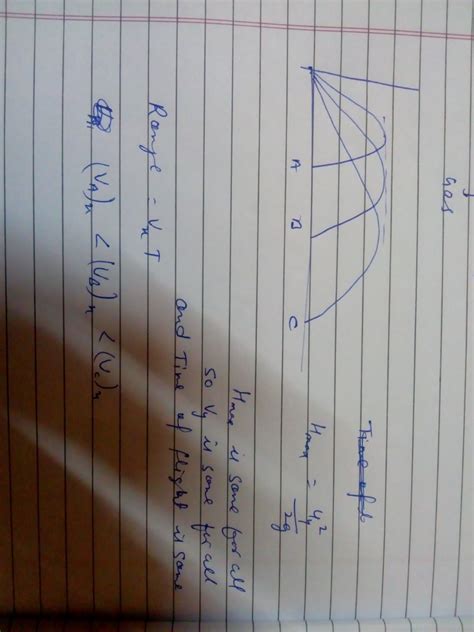 Time of
Hmax = uy²/2g
A B C
Hmax is same for all
so Vy is same for all
and Time of flight is same
Range = Vx T
(VA)x < (VB)x < (Vc)x